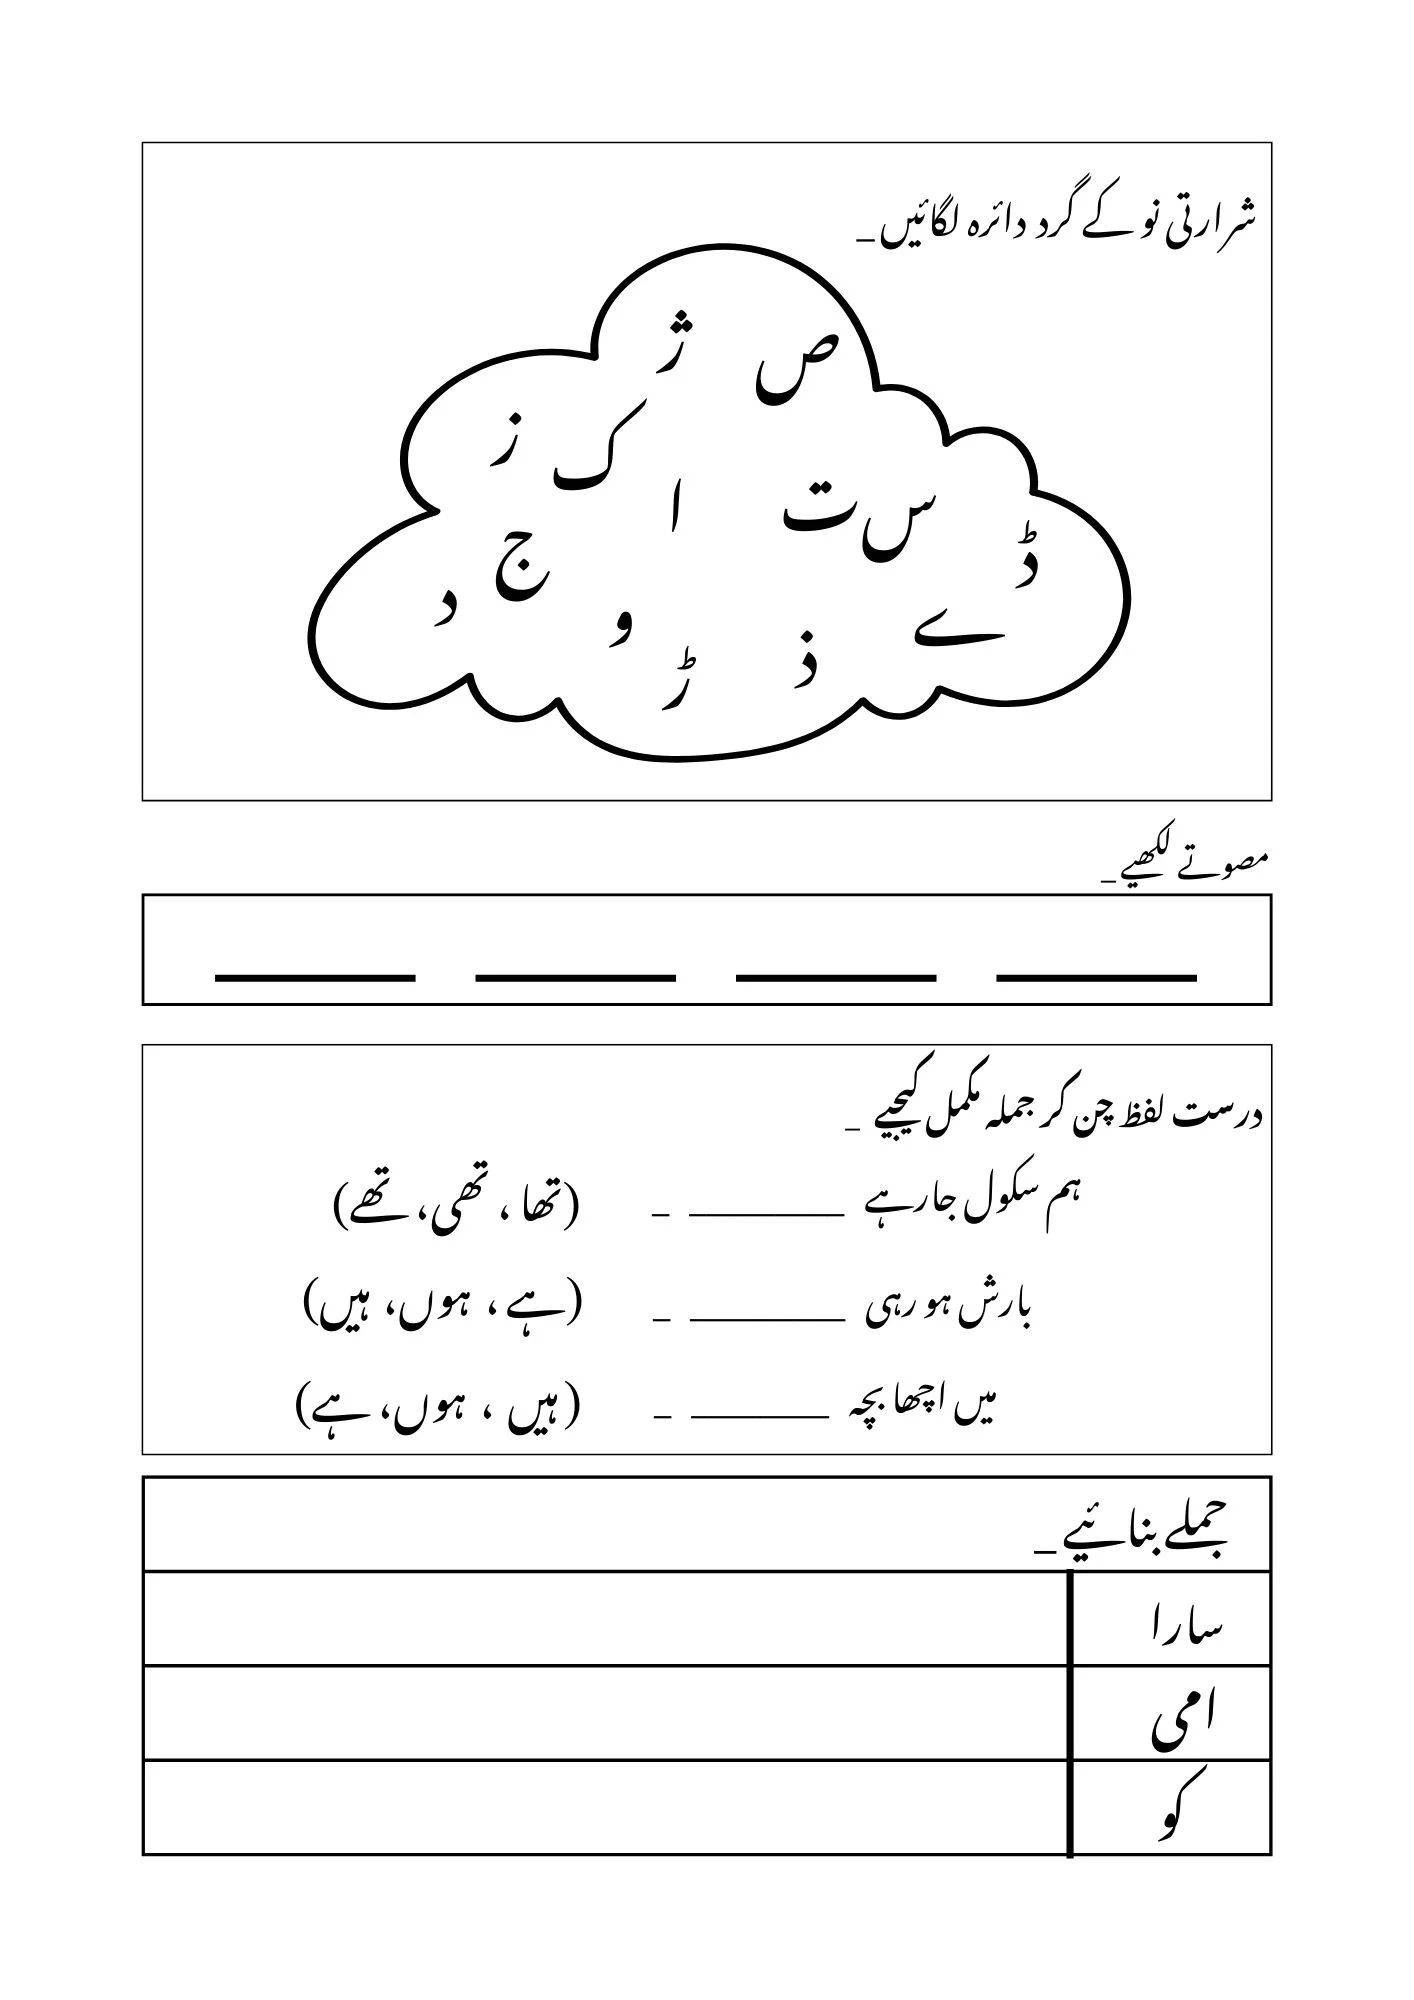 شرارتی نو کے گرد دائرہ لگائیں۔
ص ژ
ک ز
س ت ا
ڈ ج
ے و د
ذ ڑ
مصوتے لکھیے۔
____ ____ ____ ____
درست لفظ چن کر جملہ مکمل کیجیے ۔
ہم سکول جارہے ________ ۔ (تھا ، تھی، تھے)
بارش ہو رہی ________ ۔ (ہے ، ہوں، ہیں)
میں اچھا بچہ ________ ۔ (ہیں ، ہوں، ہے)
جملے بنائیے۔
سارا
امی
کو